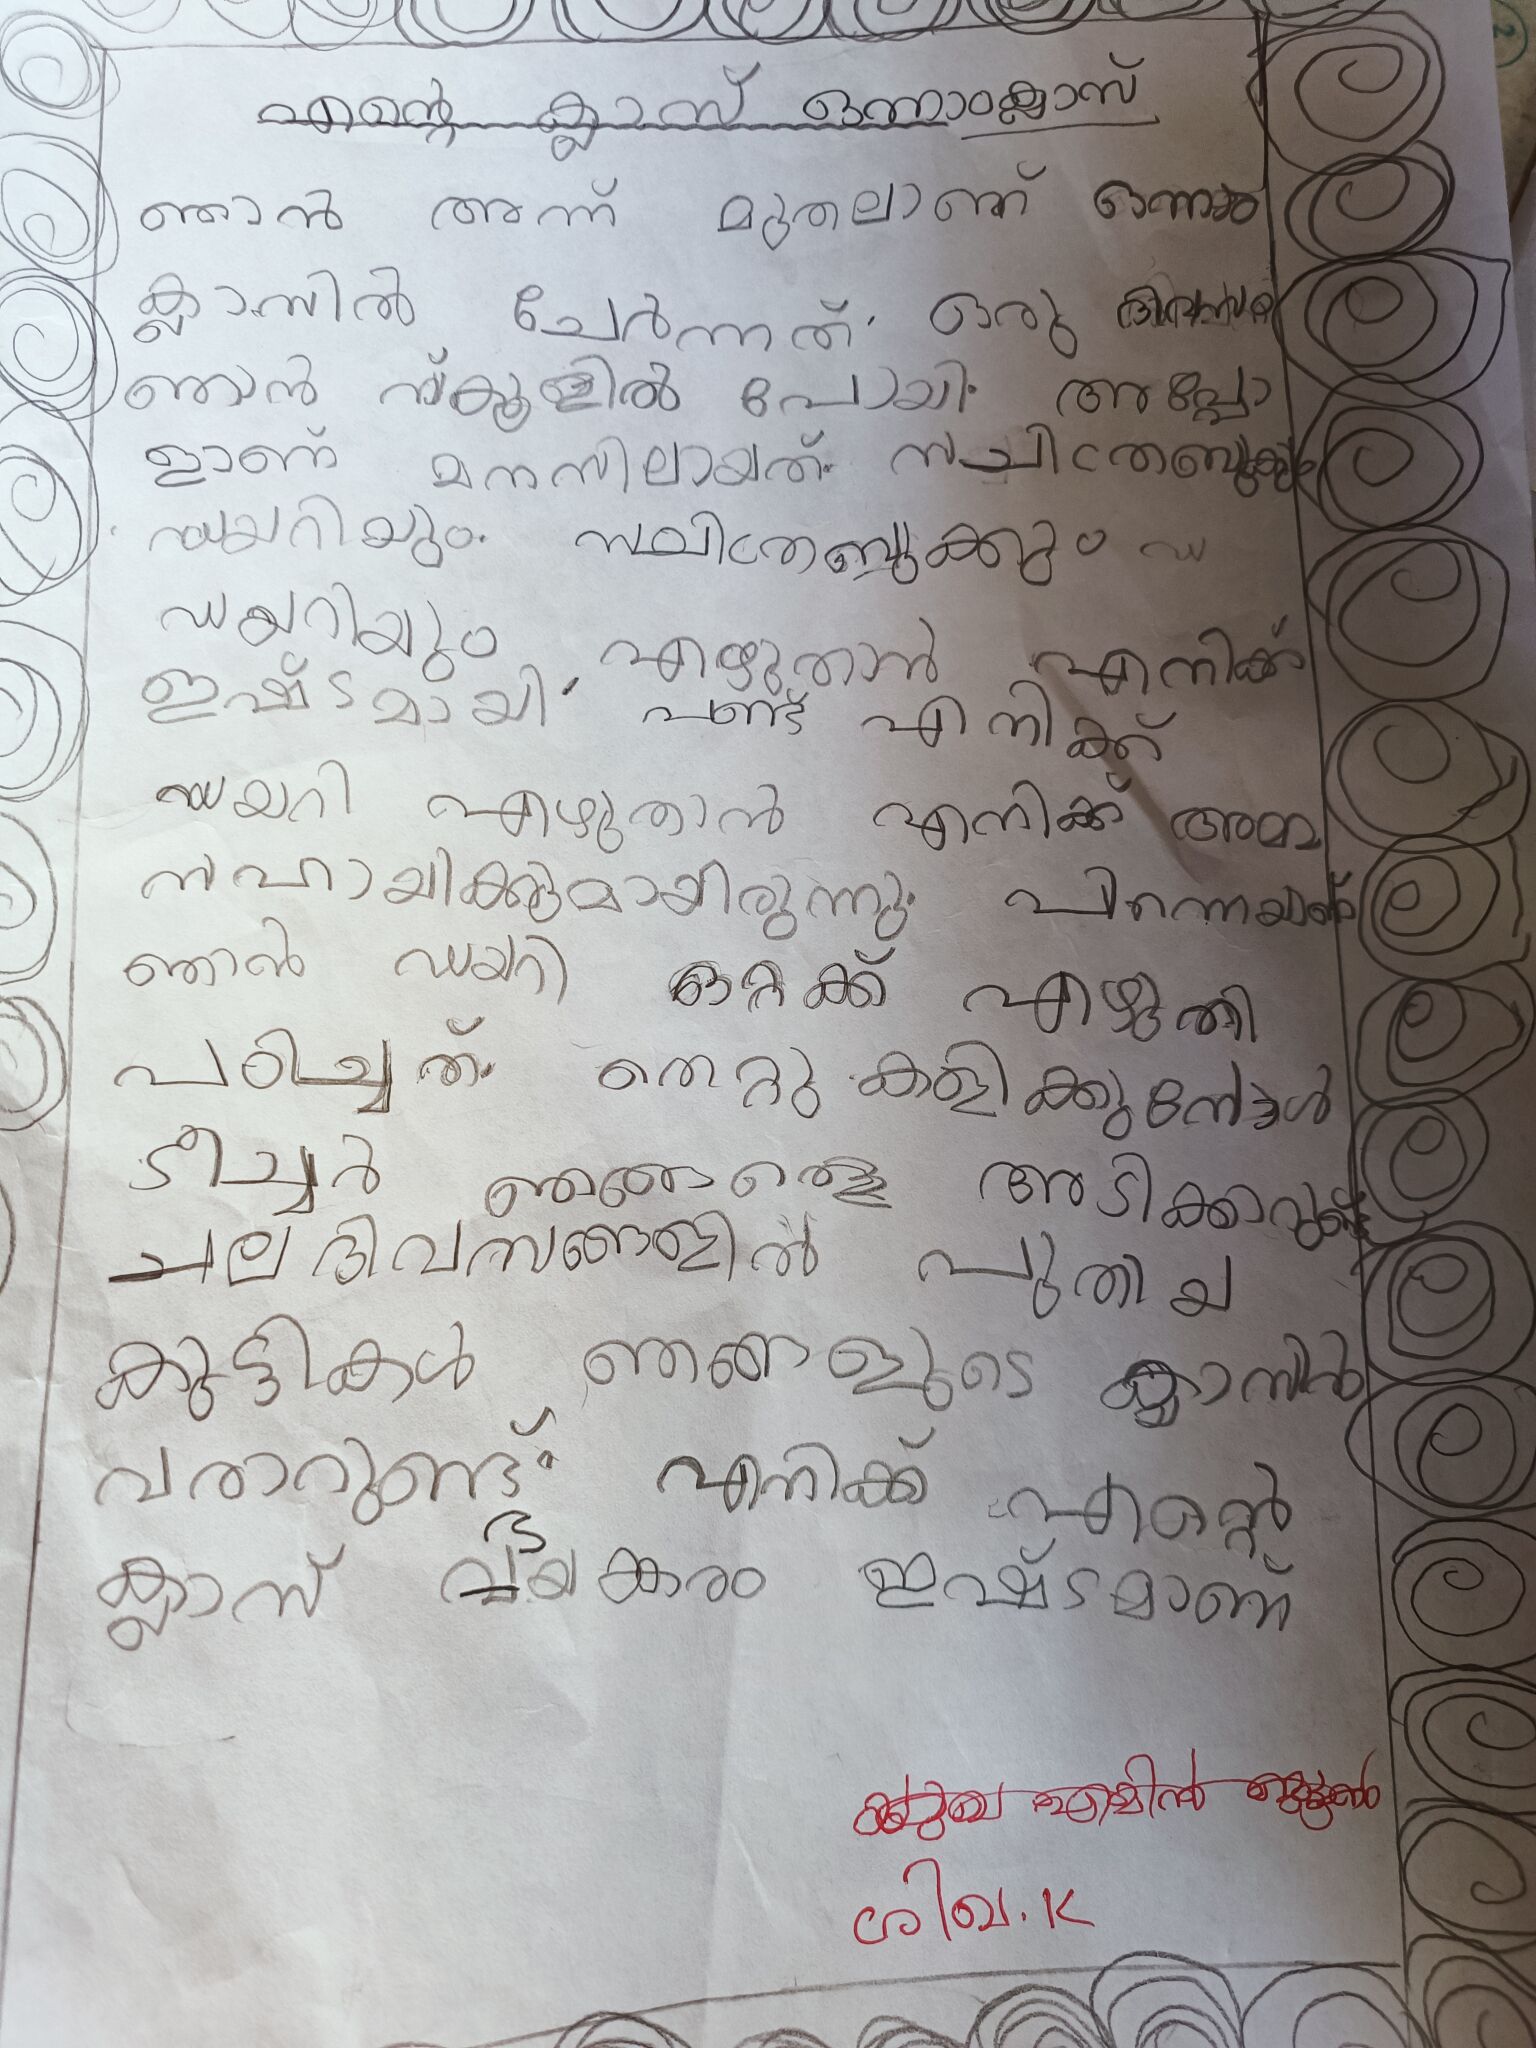 എന്റെ ക്ലാസ് ഒന്നാംക്ലാസ്
ഞാൻ അന്ന് മുതലാണ് ഒന്നാം
ക്ലാസിൽ ചേർന്നത്. ഒരു ദിവസം
ഞാൻ സ്കൂളിൽ പോയി. അപ്പോ
ഇാണ് മനസിലായത്. സചിത്രബുക്കും
ഡയറിയും. സചിത്രബുക്കും ഡ
ഡയറിയും എഴുതാൻ എനിക്ക്
ഇഷ്ടമായി. പണ്ട് എനിക്ക്
ഡയറി എഴുതാൻ എനിക്ക് അമ്മ
സഹായിക്കുമായിരുന്നു. പിന്നെയാണ്
ഞാൻ ഡയറി ഒറ്റക്ക് എഴുതി
പഠിച്ചത്. തെറ്റു കളിക്കുമ്പോൾ
ടീച്ചർ ഞങ്ങളെ അടിക്കാറുണ്ട്
ചല ദിവസങ്ങളിൽ പുതിയ
കുട്ടികൾ ഞങ്ങളുടെ ക്ലാസിൽ
വരാറുണ്ട്. എനിക്ക് എന്റെ
ക്ലാസ് ഭയക്കരം ഇഷ്ടമാണ്
ശിഖ.K